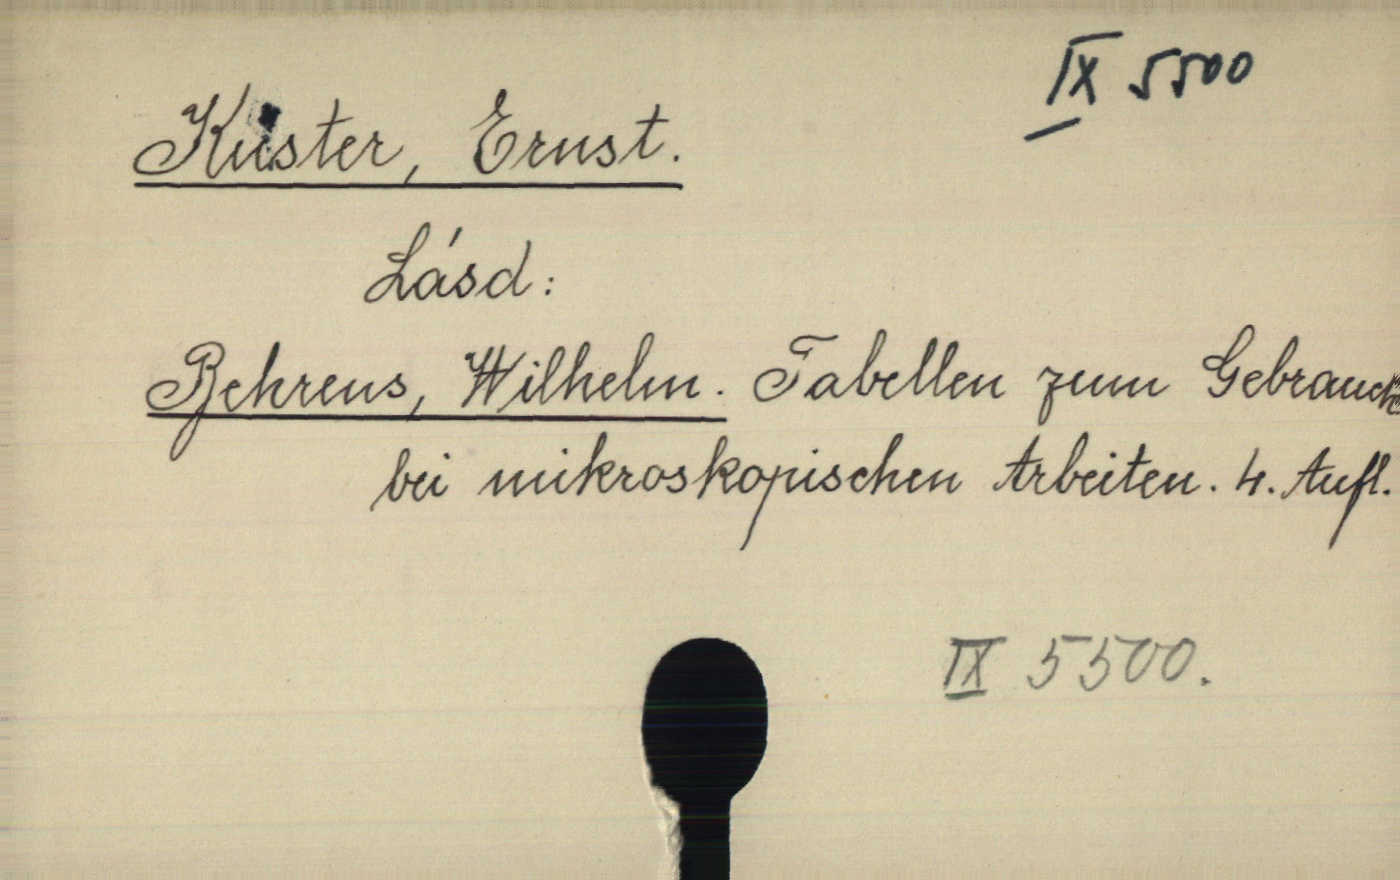 IX 5500
Küster, Ernst.
Lásd:
Behrens, Wilhelm. Tabellen zum Gebrauch
bei mikroskopischen Arbeiten. 4. Aufl.
IX 5500.